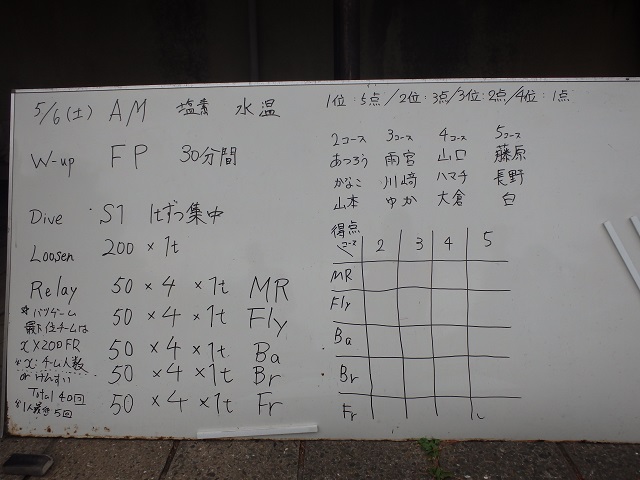 5/6(土) AM 塩素 水温
W-up FP 30分間
Dive S1 1tずつ集中
Loosen 200 × 1t
Relay 50 × 4 × 1t MR
50 × 4 × 1t Fly
50 × 4 × 1t Ba
50 × 4 × 1t Br
50 × 4 × 1t Fr
* バツゲーム
最下位チームは
x×200FR
x:チーム人数
or けんすい
Total 40回
1人最低5回
1位:5点/2位:3点/3位:2点/4位:1点
2コース 3コース 4コース 5コース
あつろう 雨宮 山口 藤原
かなこ 川﨑 ハマチ 長野
山本 ゆか 大倉 白
得点
コース 2 3 4 5
MR
Fly
Ba
Br
Fr